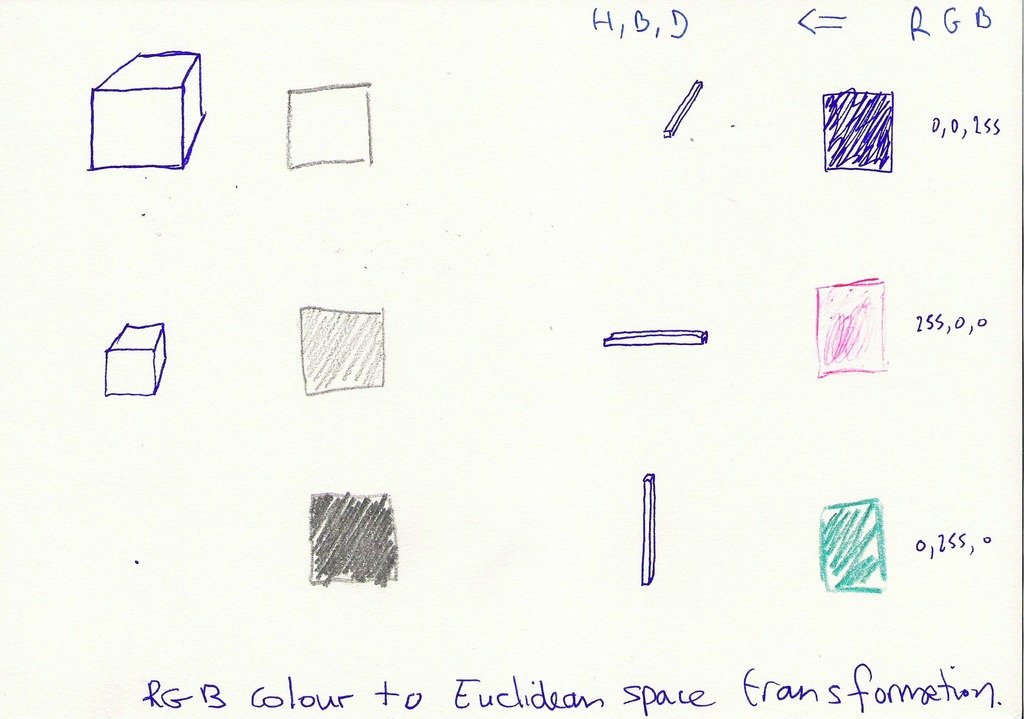 H, B, D <= R G B
0,0,255
255,0,0
0,255,0
RGB colour to Euclidean space transformation.